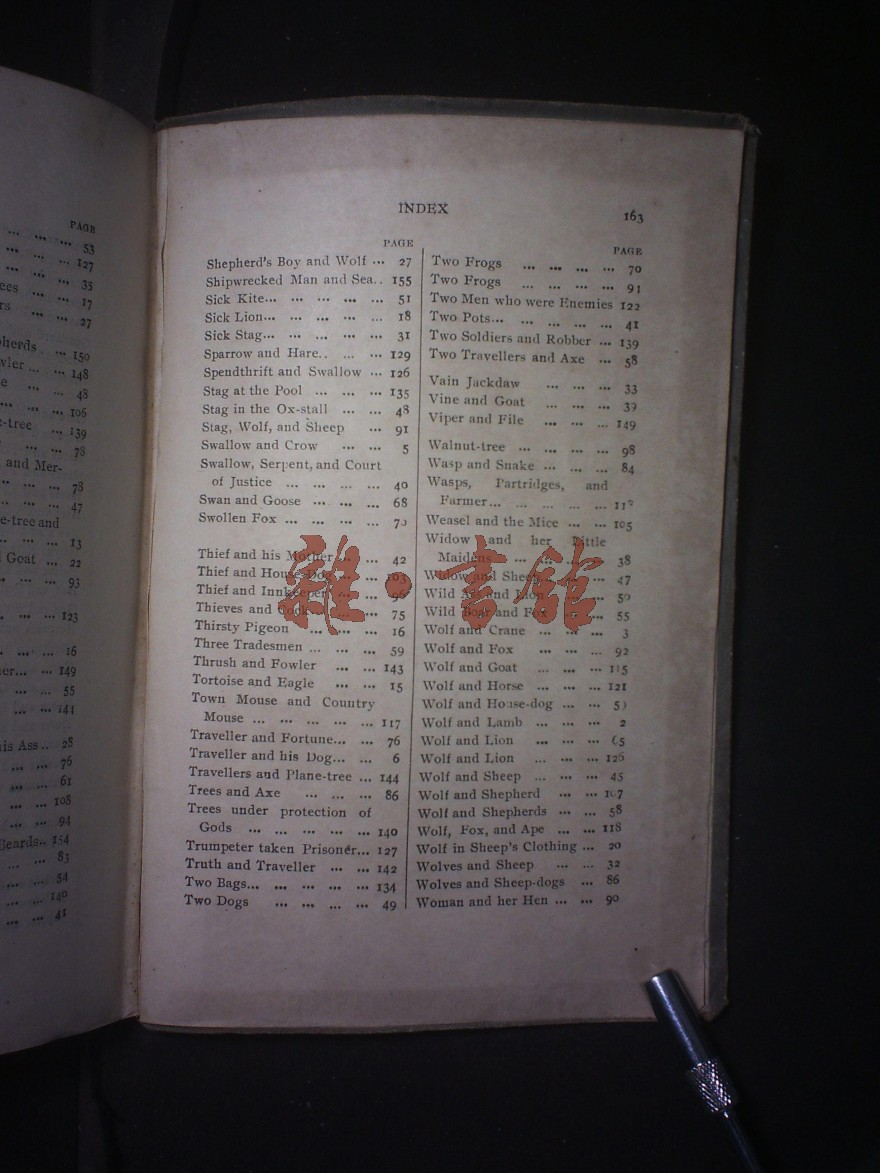 PAGE
53
127
35
17
27
herds ... 150
148
48
106
-tree ... 139
78
and Mer-
78
47
e-tree and
13
Goat ... 22
93
123
16
er... ... 149
55
144
is Ass .. 28
76
61
108
94
Beards.. 154
83
54
140
41
INDEX
163
PAGE
Shepherd's Boy and Wolf ... 27
Shipwrecked Man and Sea.. 155
Sick Kite... ... ... ... ... 51
Sick Lion... ... ... ... ... 18
Sick Stag... ... ... ... ... 31
Sparrow and Hare.. ... ... 129
Spendthrift and Swallow ... 126
Stag at the Pool ... ... ... 135
Stag in the Ox-stall ... ... 48
Stag, Wolf, and Sheep ... 91
Swallow and Crow ... ... 5
Swallow, Serpent, and Court
of Justice ... ... ... ... 40
Swan and Goose ... ... ... 68
Swollen Fox ... ... ... ...
Thief and his Mother ... ... 42
Thief and House-Dog ... ... 103
Thief and Innkeeper ... 96
Thieves and Cock ... ... 75
Thirsty Pigeon ... ... ... 16
Three Tradesmen ... ... ... 59
Thrush and Fowler ... ... 143
Tortoise and Eagle ... ... 15
Town Mouse and Country
Mouse ... ... ... ... ... 117
Traveller and Fortune... ... 76
Traveller and his Dog... ... 6
Travellers and Plane-tree ... 144
Trees and Axe ... ... ... 86
Trees under protection of
Gods ... ... ... ... ... 140
Trumpeter taken Prisoner... 127
Truth and Traveller ... ... 142
Two Bags... ... ... ... ... 134
Two Dogs ... ... ... ... 49
PAGE
Two Frogs ... ... ... ... 70
Two Frogs ... ... ... ... 91
Two Men who were Enemies 122
Two Pots... ... ... ... ... 41
Two Soldiers and Robber ... 139
Two Travellers and Axe ... 58
Vain Jackdaw ... ... ... 33
Vine and Goat ... ... ... 39
Viper and File ... ... ... 149
Walnut-tree ... ... ... ... 98
Wasp and Snake ... ... ... 84
Wasps, Partridges, and
Farmer... ... ... ... ...
Weasel and the Mice ... ... 105
Widow and her Little
Maidens ... ... ... ... 38
Widow and Sheep ... ... 47
Wild Ass and Lion ... ... 50
Wild Boar and Fox ... ... 55
Wolf and Crane ... ... ... 3
Wolf and Fox ... ... ... 92
Wolf and Goat ... ... ... 115
Wolf and Horse ... ... ... 121
Wolf and House-dog ... ...
Wolf and Lamb ... ... ... 2
Wolf and Lion ... ... ... 65
Wolf and Lion ... ... ... 126
Wolf and Sheep ... ... ... 45
Wolf and Shepherd ... ... 107
Wolf and Shepherds ... ... 58
Wolf, Fox, and Ape ... ... 118
Wolf in Sheep's Clothing ... 20
Wolves and Sheep ... ... 32
Wolves and Sheep-dogs ... 86
Woman and her Hen ... ... 90
雅·書館